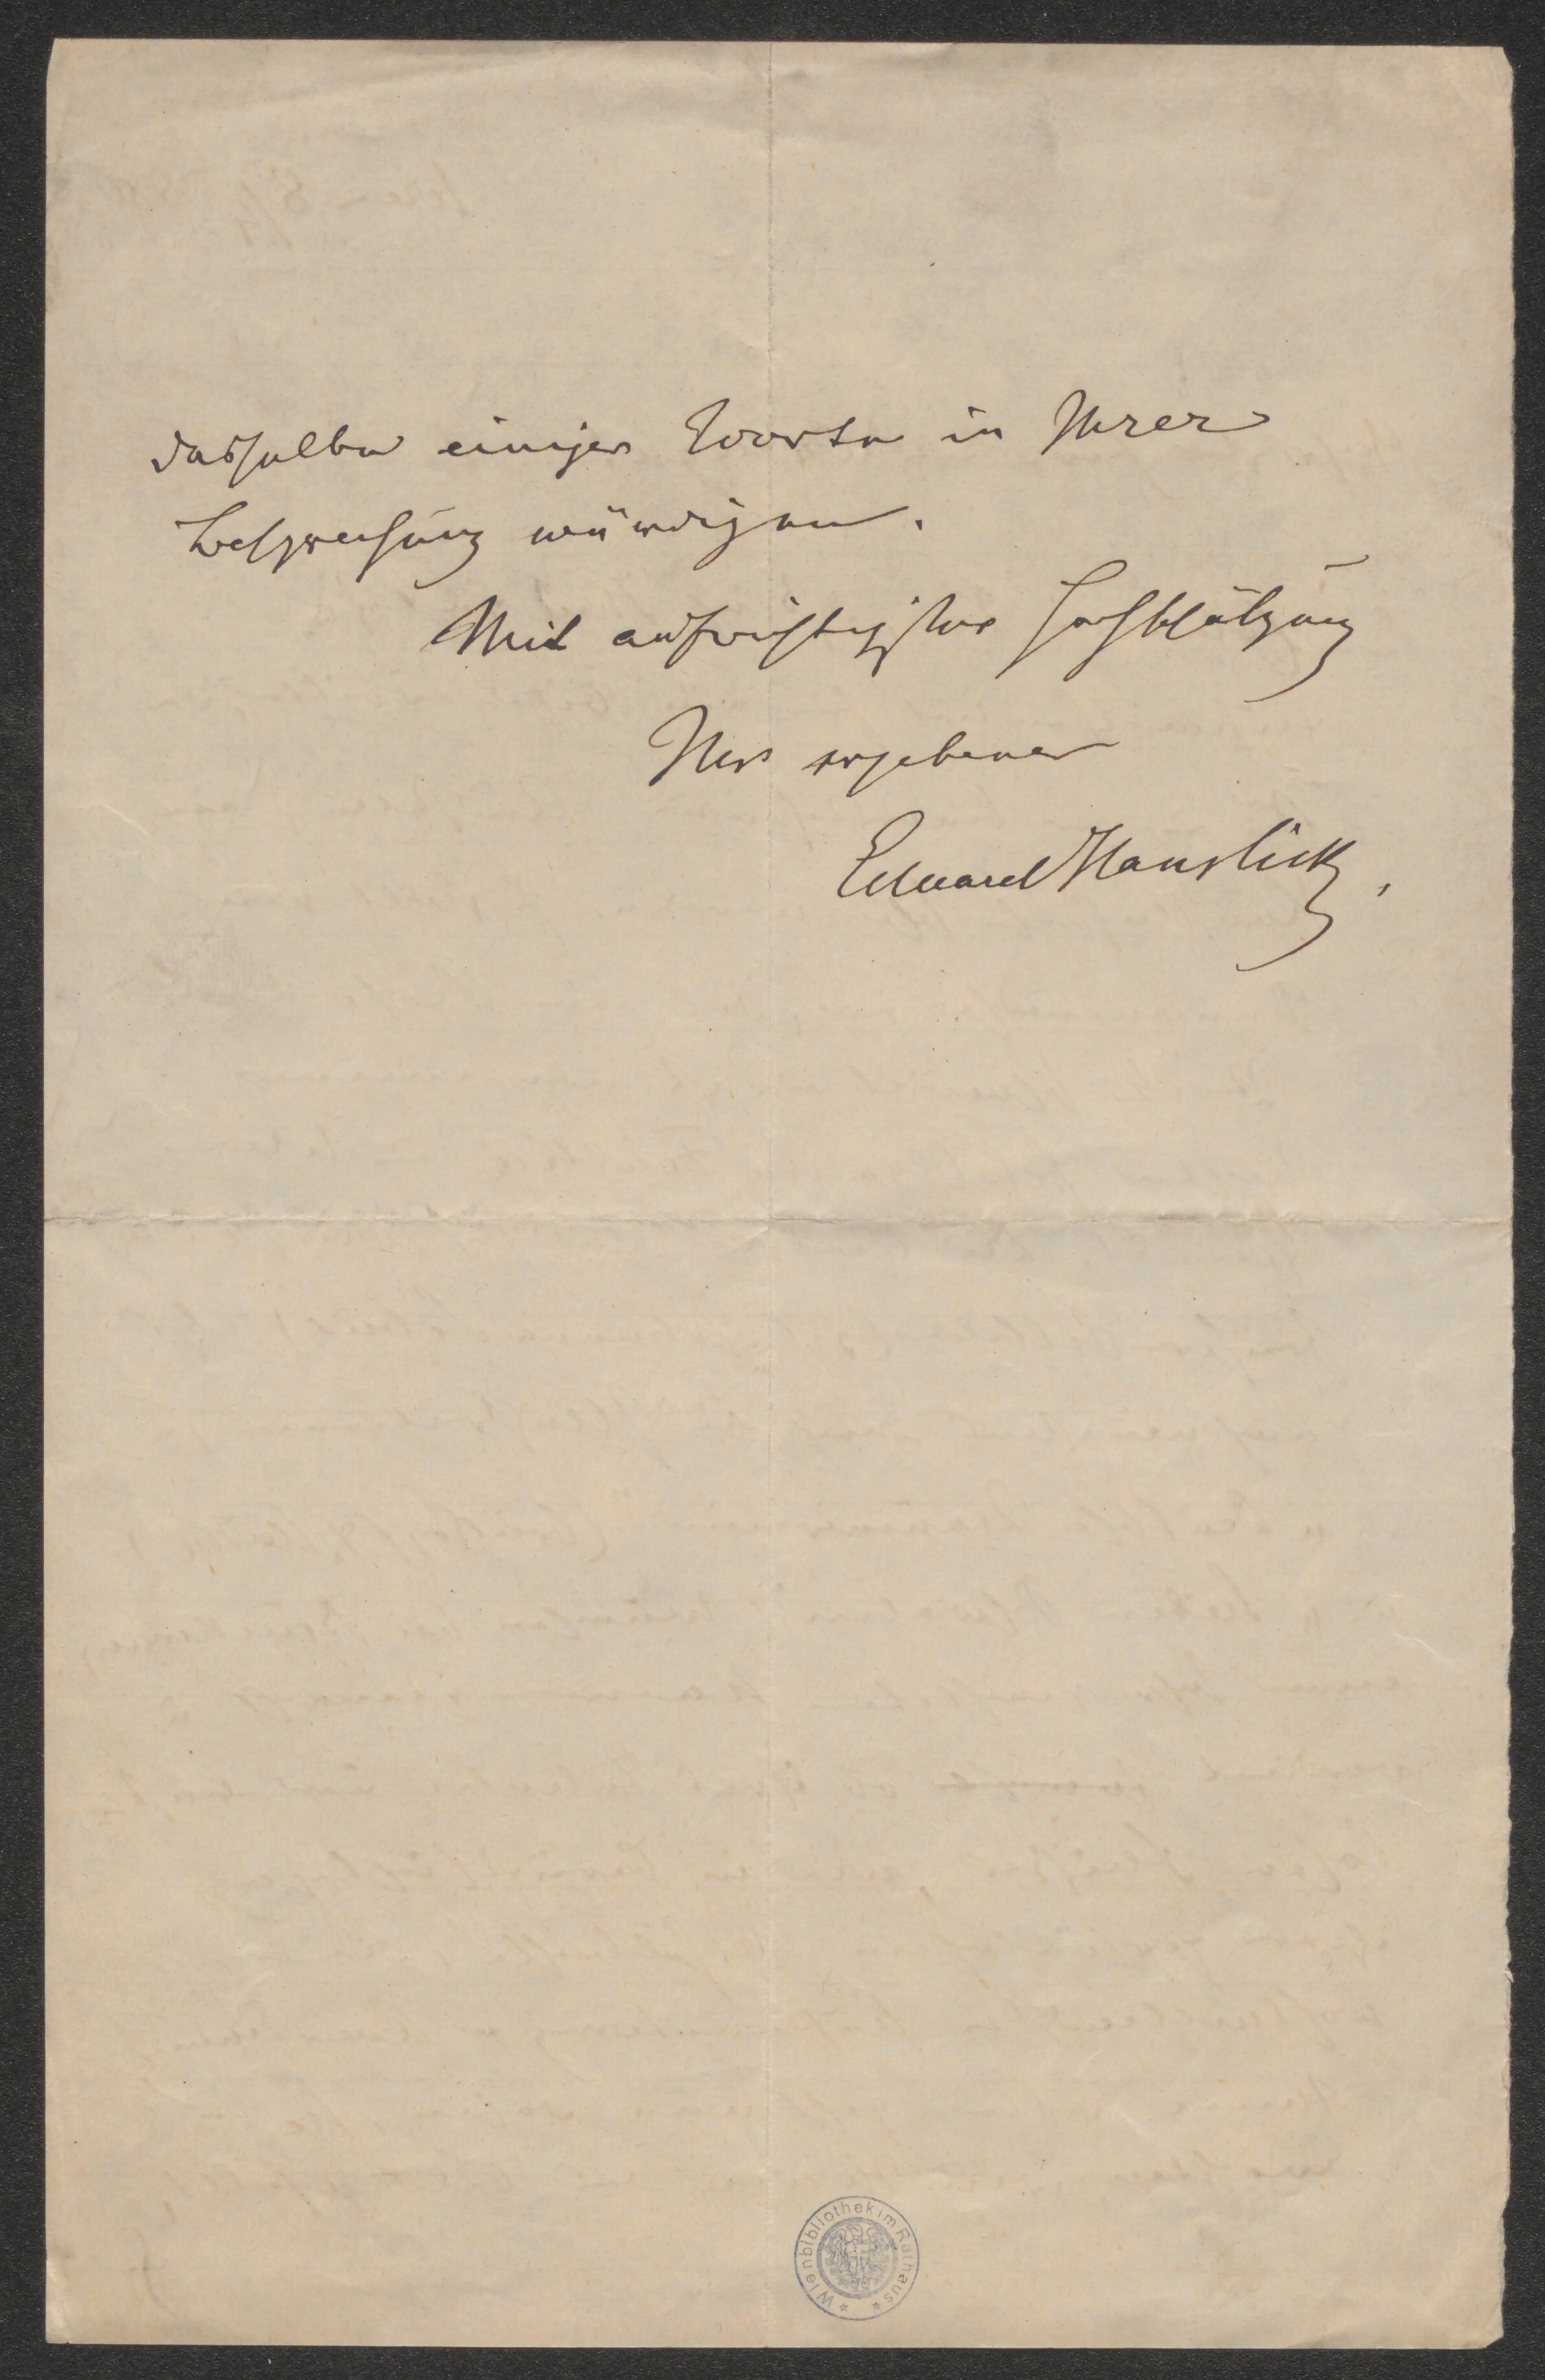 dasselbe einiger Worte in Ihrer
Besprechung würdigen.
Mit aufrichtigster Hochschätzung
Ihr ergebener
Eduard Hanslick,
Wienbibliothek im Rathaus